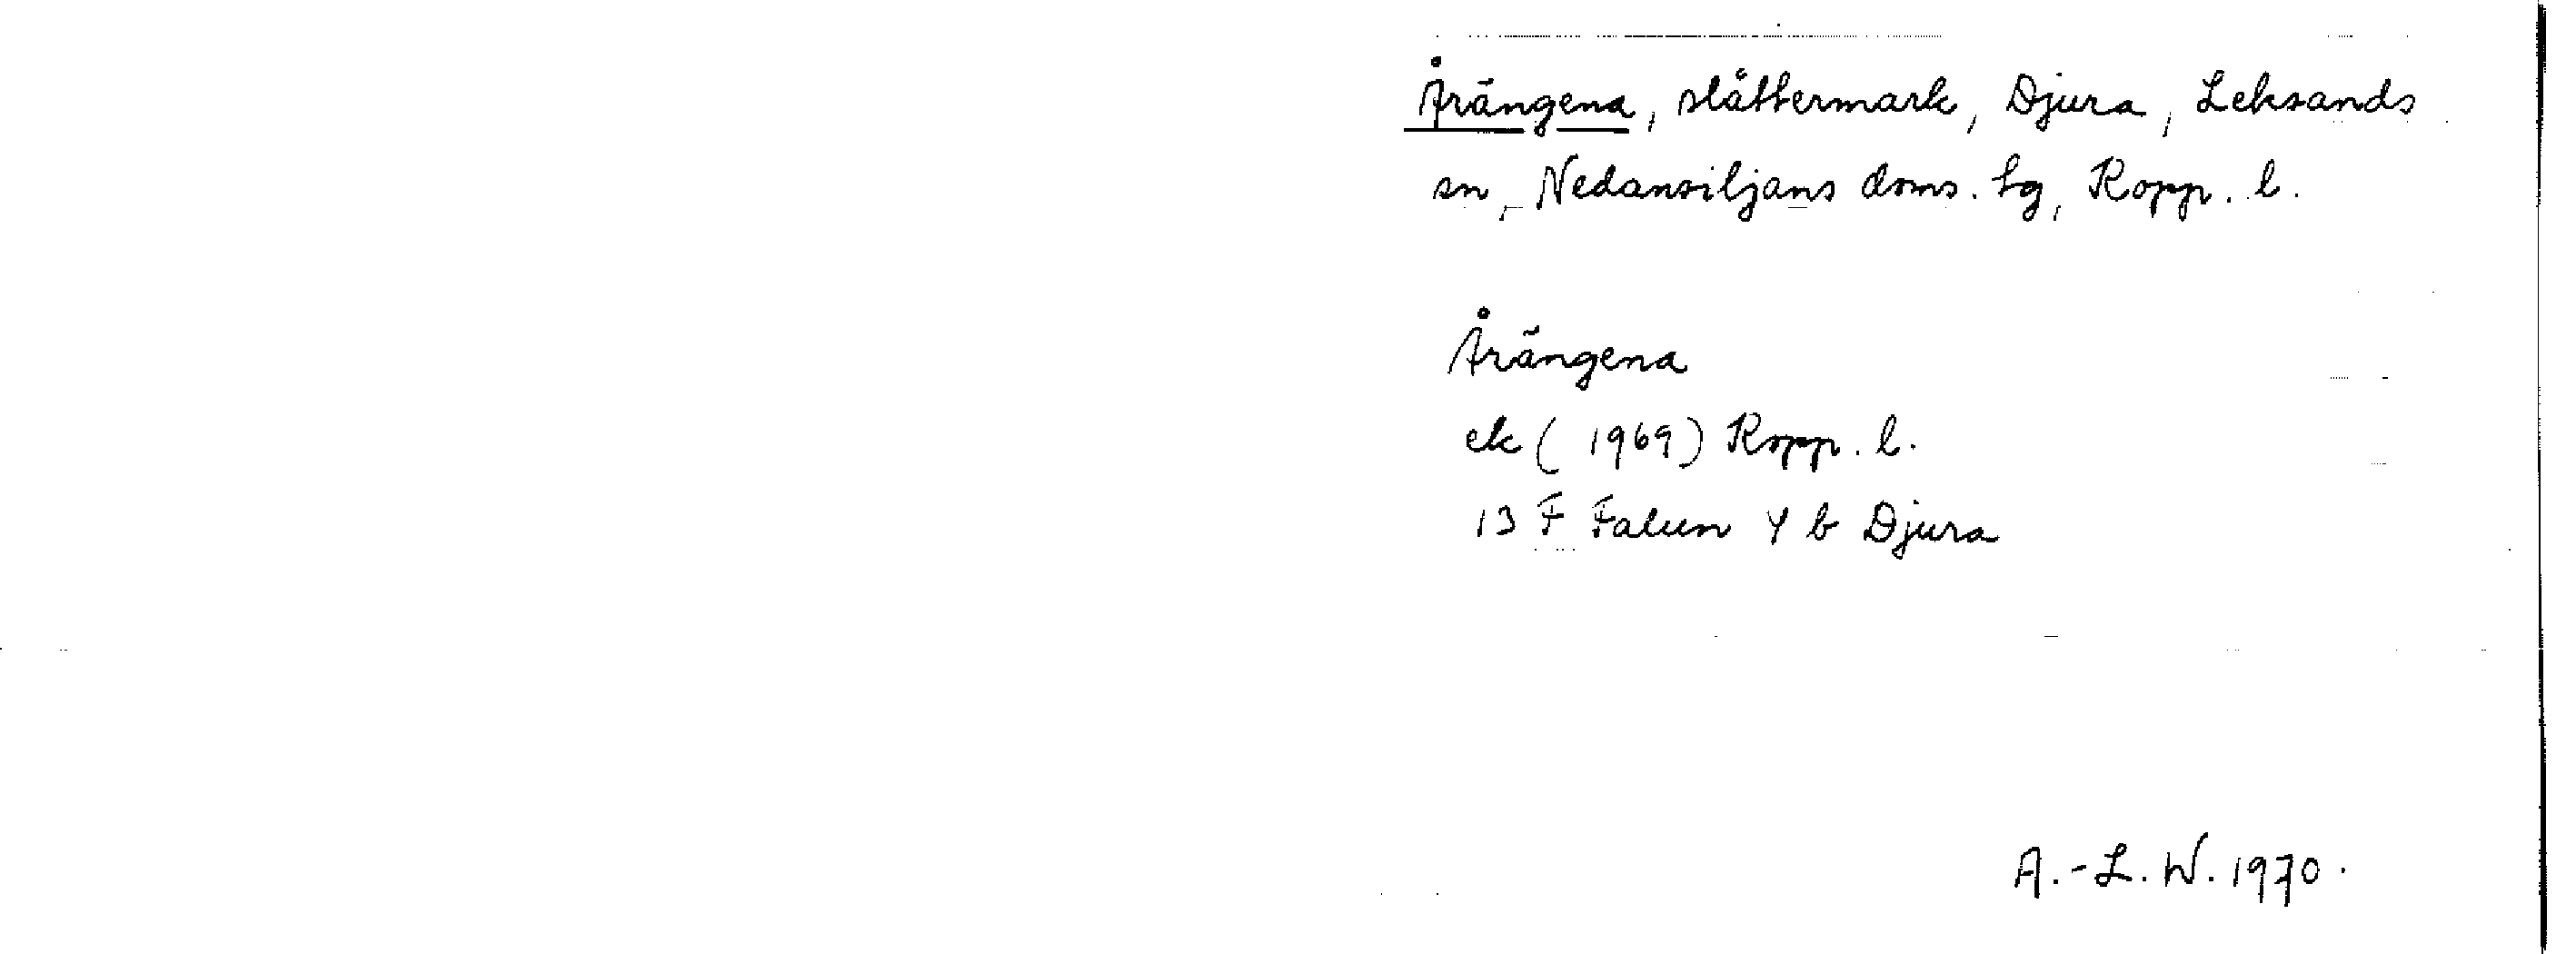 Årängena, slåttermark, Djura, Leksands
sn, Nedansiljans doms. tg, Kopp. l.
Årängena
ek (1969) Kopp. l.
13 F Falun Y b Djura
A.-L. W. 1970.